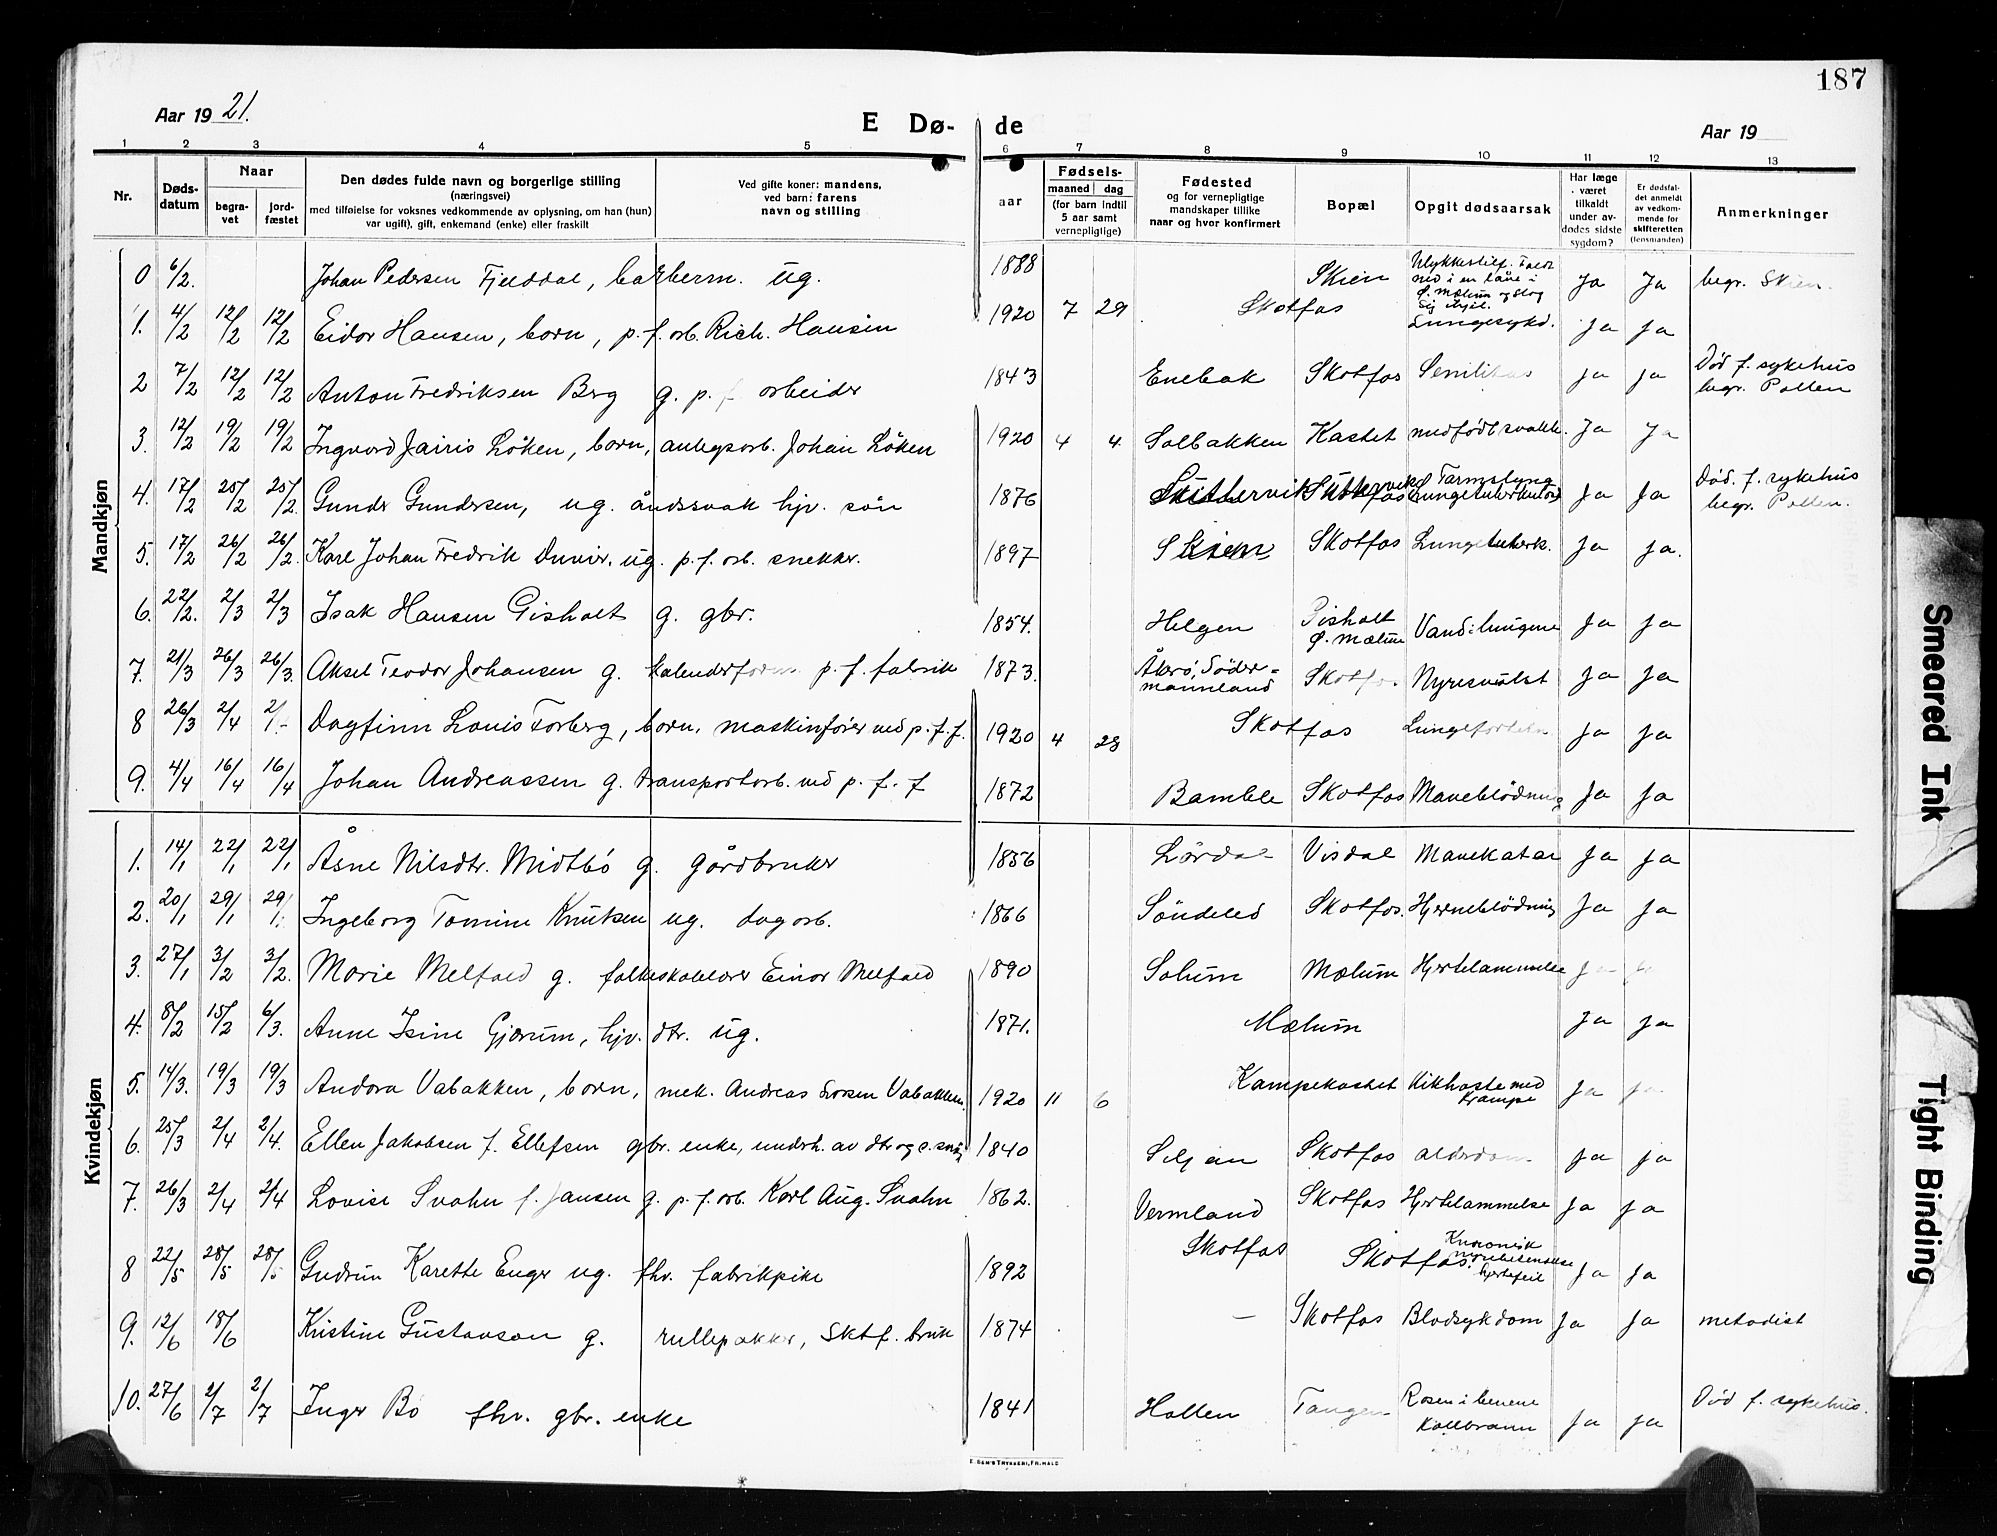 187
Aar 19 21.
E Dø- de
Aar 19
1 2 3 4 5 6 7 8 9 10 11 12 13
Nr.
Døds-
datum
Naar
begra-
vet
jord-
fæstet
Den dødes fulde navn og borgerlige stilling
(næringsvei)
med tilføielse for voksnes vedkommende av oplysning, om han (hun)
var ugift), gift, enkemand (enke) eller fraskilt
Ved gifte koner: mandens,
ved barn: farens
navn og stilling
aar
Fødsels-
maaned dag
(for barn indtil
5 aar samt
vernepligtige)
Fødested
og for vernepligtige
mandskaper tillike
naar og hvor konfirmert
Bopæl
Opgit dødsaarsak
Har læge
været
tilkaldt
under av-
dødes sidste
sygdom?
Er dødsfal-
det anmeldt
av vedkom-
mende for
skifteretten
(lensmanden)
Anmerkninger
Mandkjøn
0 6/2. Johan Pedersen Fjelddal, barberm. ug. 1888 Skien Ulykkestilf. Faldt ned i en låve i Ø. Mælum og slog sig ihjel. Ja Ja begr. Skien.
1. 4/2 12/2 12/2 Eidor Hansen, barn, p.f. arb. Rich. Hansen 1920 7 29 Skotfos Lungesykd. Ja Ja
2 7/2 12/2 12/2 Anton Fredriksen Berg g. p. f. arbeider 1843 Enebak Skotfos Senilitas Ja Ja Død f. sykehus begr. Pollen
3. 12/2 19/2 19/2 Ingvard Jairis Løken, barn, anlegsarb. Johan Løken 1920 4 4 Solbakken Kastet medfødt svakh. Ja Ja
4. 17/2 25/2 25/2. Gunder Gundersen, ug. åndssvak hjv. søn 1876 Skotfos Tarmslyng Lungetuberkulose Ja Ja Død. f. sykehus begr. Pollen.
5. 17/2 26/2 26/2. Karl Johan Fredrik ug. p.f. arb. snekker. 1897 Skien Skotfos Lungetuberk. Ja Ja.
6. 22/2. 2/3 2/3 Isak Hansen Gisholt g. gbr. 1854. Helgen Gisholt Ø. Mælum Vand i lungene Ja Ja
7. 21/3 26/3 26/3. Aksel Teodor Johansen g. kalenderform. p. f. fabrik 1873. Åkerö, Söder=mannland Skotfos. Nyresvulst Ja Ja
8 26/3 2/4 Dagfinn Louis Forberg, barn, maskinfører ved p. f. f. 1920 4 28 Skotfos Ja Ja
9. 4/4 16/4 16/4 Johan Andreassen g. transportarb. ved p. f. f 1872 Bamble Skotfos Maveblødning Ja Ja
Kvindekjøn
1. 14/1 22/1 22/1 Åsne Nilsdtr. Midtbö g. gårdbruker 1856 Lårdal Visdal Mavekatar Ja Ja
2. 20/1 29/1 29/1. Ingeborg Tomine Knutsen ug. dagarb. 1866 Söndeled Skotfos. Hjerneblødning Ja Ja
3. 27/1 3/2 3/2. Marie Melfald g. folkeskolelærer Einar Melfald 1890 Solum Mælum Hjertelammelse Ja Ja
4. 8/2 15/2 6/3. Anne Isine Gjærum, hjv. dtr. ug. 1871. Mælum Ja Ja
5. 14/3. 19/3 19/3 Andora Vabakken, barn, mek. Andreas Vabakken. 1920 11 6 Kampekastet Kikhoste med krampe Ja Ja
6. 25/3 2/4 2/4. Ellen Jakobsen f. Ellefsen gbr. enke, undrh. av dtr og 1840 Siljan Skotfos alderdom Ja Ja
7. 26/3 2/4 2/4 Lovise Svahn f. Jansen g. p. f. arb. Karl Aug. Svahn 1862. Vermland Skotfos Hjertelammelse Ja Ja
8 22/5 28/5 28/5 Gudrun Karette Enger ug. fhv. fabrikpike 1892 Skotfos Skotfos. Kronisk nyrebetendelse hjertefeil Ja Ja
9. 12/6 18/6 Kristine Gustavson g. rullepakker, Sktf. bruk 1874 — Skotfos Blodsykdom Ja Ja metodist
10. 27/6 2/7 2/7 Inger Bö fhv. gbr. enke 1841 Hollen Tangen Rosen i benene Koldbrann Ja Ja Død f. sykehus.
E. SEM'S TRYKKERI, FR.HALD
Smeared Ink
Tight Binding